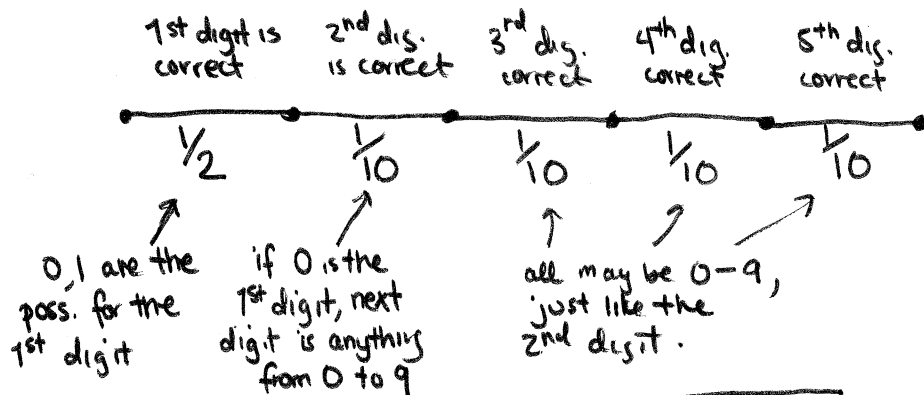 1st digit is
correct
2nd dig.
is correct
3rd dig.
correct
4th dig.
correct
5th dig.
correct
1/2
1/10
1/10
1/10
1/10
0,1 are the
poss. for the
1st digit
if 0 is the
1st digit, next
digit is anything
from 0 to 9
all may be 0-9,
just like the
2nd digit.